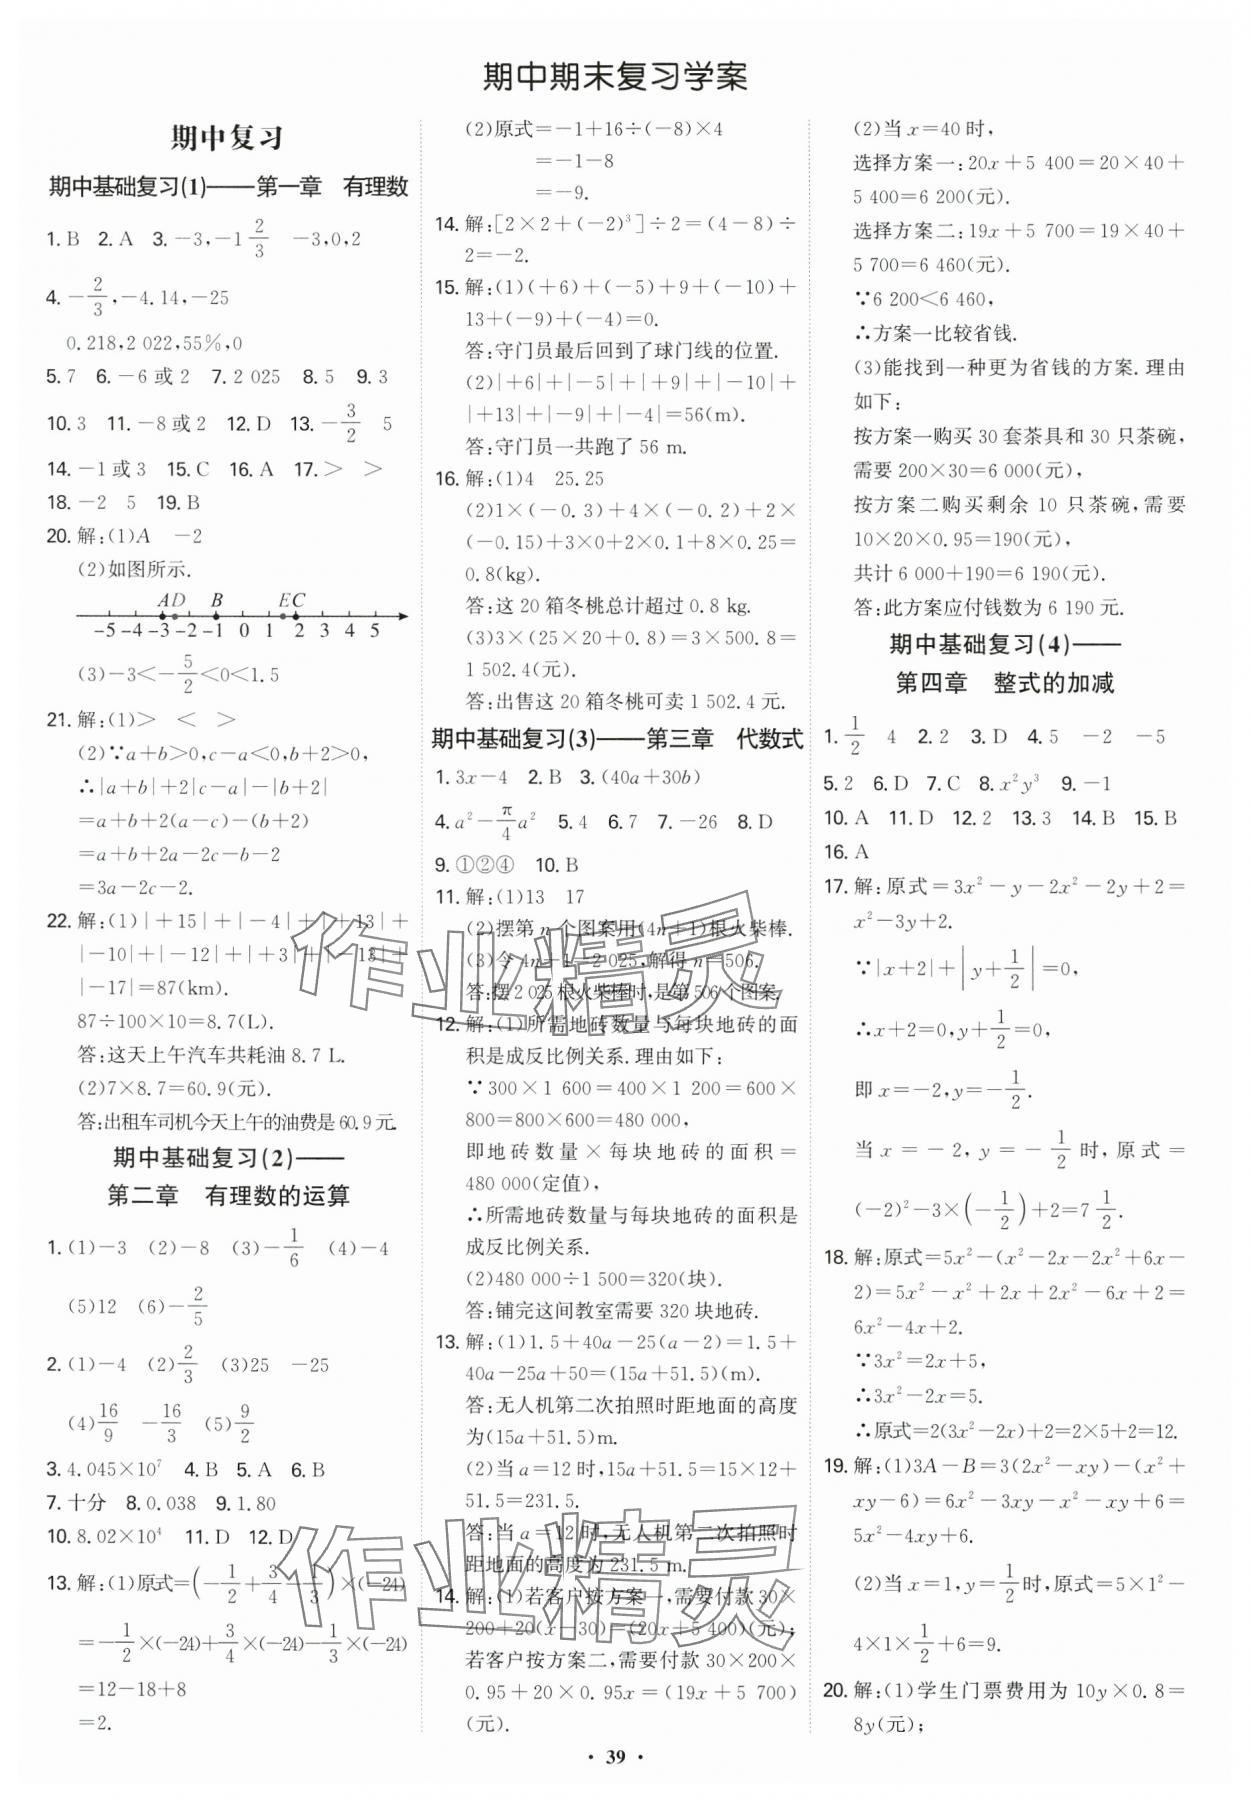 期中期末复习学案
期中复习
期中基础复习(1)——第一章　有理数
1. B　2. A　3. －3,－1 2/3　－3,0,2
4. －2/3,－4.14,－25
0.218,2 022,55%,0
5. 7　6. －6或2　7. 2 025　8. 5　9. 3
10. 3　11. －8或2　12. D　13. －3/2　5
14. －1或3　15. C　16. A　17. ＞　＞
18. －2　5　19. B
20. 解:(1)A　－2
(2)如图所示.
A D B E C
－5 －4 －3 －2 －1 0 1 2 3 4 5
(3)－3＜－5/2＜0＜1.5
21. 解:(1)＞　＜　＞
(2)∵a＋b＞0,c－a＜0,b＋2＞0,
∴|a＋b|＋2|c－a|－|b＋2|
＝a＋b＋2(a－c)－(b＋2)
＝a＋b＋2a－2c－b－2
＝3a－2c－2.
22. 解:(1)|＋15|＋|－4|＋|＋13|＋
|－10|＋|－12|＋|＋3|＋|－13|＋
|－17|＝87(km).
87÷100×10＝8.7(L).
答:这天上午汽车共耗油 8.7 L.
(2)7×8.7＝60.9(元).
答:出租车司机今天上午的油费是60.9元.
期中基础复习(2)——
第二章　有理数的运算
1. (1)－3　(2)－8　(3)－1/6　(4)－4
(5)12　(6)－2/5
2. (1)－4　(2)2/3　(3)25　－25
(4)16/9　－16/3　(5)9/2
3. 4.045×10⁷　4. B　5. A　6. B
7. 十分　8. 0.038　9. 1.80
10. 8.02×10⁴　11. D　12. D
13. 解:(1)原式＝(－1/2＋3/4－1/3)×(－24)
＝－1/2×(－24)＋3/4×(－24)－1/3×(－24)
＝12－18＋8
＝2.
(2)原式＝－1＋16÷(－8)×4
＝－1－8
＝－9.
14. 解:[2×2＋(－2)³]÷2＝(4－8)÷
2＝－2.
15. 解:(1)(＋6)＋(－5)＋9＋(－10)＋
13＋(－9)＋(－4)＝0.
答:守门员最后回到了球门线的位置.
(2)|＋6|＋|－5|＋|＋9|＋|－10|＋
|＋13|＋|－9|＋|－4|＝56(m).
答:守门员一共跑了 56 m.
16. 解:(1)4　25.25
(2)1×(－0.3)＋4×(－0.2)＋2×
(－0.15)＋3×0＋2×0.1＋8×0.25＝
0.8(kg).
答:这 20 箱冬桃总计超过 0.8 kg.
(3)3×(25×20＋0.8)＝3×500.8＝
1 502.4(元).
答:出售这 20 箱冬桃可卖 1 502.4 元.
期中基础复习(3)——第三章　代数式
1. 3x－4　2. B　3. (40a＋30b)
4. a²－π/4 a²　5. 4　6. 7　7. －26　8. D
9. ①②④　10. B
11. 解:(1)13　17
(2)摆第 n 个图案用(4n＋1)根火柴棒.
(3)令 4n＋1＝2 025,解得 n＝506.
答:摆 2 025 根火柴棒时,是第 506 个图案.
12. 解:(1)所需地砖数量与每块地砖的面
积是成反比例关系.理由如下:
∵300×1 600＝400×1 200＝600×
800＝800×600＝480 000,
即地砖数量×每块地砖的面积＝
480 000(定值),
∴所需地砖数量与每块地砖的面积是
成反比例关系.
(2)480 000÷1 500＝320(块).
答:铺完这间教室需要 320 块地砖.
13. 解:(1)1.5＋40a－25(a－2)＝1.5＋
40a－25a＋50＝(15a＋51.5)(m).
答:无人机第二次拍照时距地面的高度
为(15a＋51.5)m.
(2)当 a＝12 时,15a＋51.5＝15×12＋
51.5＝231.5.
答:当 a＝12 时,无人机第二次拍照时
距地面的高度为 231.5 m.
14. 解:(1)若客户按方案一,需要付款 30×
200＋20(x－30)＝(20x＋5 400)(元);
若客户按方案二,需要付款 30×200×
0.95＋20×0.95x＝(19x＋5 700)
(元).
(2)当 x＝40 时,
选择方案一:20x＋5 400＝20×40＋
5 400＝6 200(元).
选择方案二:19x＋5 700＝19×40＋
5 700＝6 460(元).
∵6 200＜6 460,
∴方案一比较省钱.
(3)能找到一种更为省钱的方案.理由
如下:
按方案一购买 30 套茶具和 30 只茶碗,
需要 200×30＝6 000(元),
按方案二购买剩余 10 只茶碗,需要
10×20×0.95＝190(元),
共计 6 000＋190＝6 190(元).
答:此方案应付钱数为 6 190 元.
期中基础复习(4)——
第四章　整式的加减
1. 1/2　4　2. 2　3. D　4. 5　－2　－5
5. 2　6. D　7. C　8. x²y³　9. －1
10. A　11. D　12. 2　13. 3　14. B　15. B
16. A
17. 解:原式＝3x²－y－2x²－2y＋2＝
x²－3y＋2.
∵|x＋2|＋|y＋1/2|＝0,
∴x＋2＝0,y＋1/2＝0,
即 x＝－2,y＝－1/2.
当 x＝－2,y＝－1/2时,原式＝
(－2)²－3×(－1/2)＋2＝7 1/2.
18. 解:原式＝5x²－(x²－2x－2x²＋6x－
2)＝5x²－x²＋2x＋2x²－6x＋2＝
6x²－4x＋2.
∵3x²＝2x＋5,
∴3x²－2x＝5.
∴原式＝2(3x²－2x)＋2＝2×5＋2＝12.
19. 解:(1)3A－B＝3(2x²－xy)－(x²＋
xy－6)＝6x²－3xy－x²－xy＋6＝
5x²－4xy＋6.
(2)当 x＝1,y＝1/2时,原式＝5×1²－
4×1×1/2＋6＝9.
20. 解:(1)学生门票费用为 10y×0.8＝
8y(元);
· 39 ·
作业精灵
作业精灵